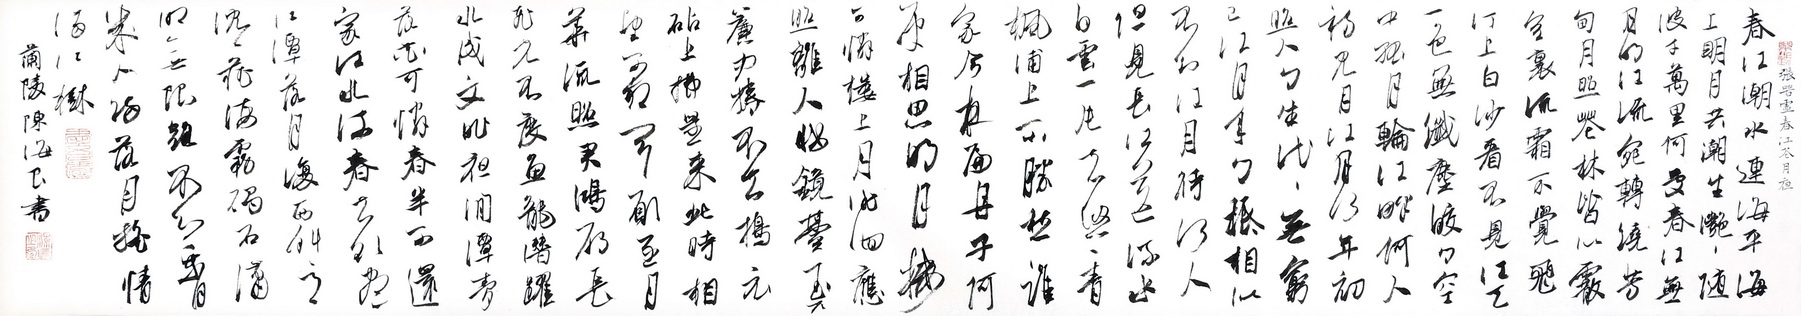 張若虛春江花月夜
春江潮水連海平海
上明月共潮生灩〻随
波千萬里何處春江無
月明江流宛轉繞芳
甸月照花林皆似霰
空裏流霜不覺飛
汀上白沙看不見江天
一色無纖塵皎〻空
中孤月輪江畔何人
初見月江月何年初
照人人生代〻無窮
已江月年〻秪相似
不知江月待何人
但見長江送流水
白雲一片去悠〻青
楓浦上不勝愁誰
家今夜扁舟子何
處相思明月樓
可憐樓上月徘徊應
照離人妝鏡臺玉戶
簾中捲不去擣衣
砧上拂還來此時相
望不相聞願逐月
華流照君鴻雁長
飛光不度魚龍潛躍
水成文昨夜閒潭夢
落花可憐春半不還
家江水流春去欲盡
江潭落月復西斜斜月
沉〻藏海霧碣石瀟
湘無限路不知乘月
幾人歸落月搖情
滿江樹
蘭陵陳海良書